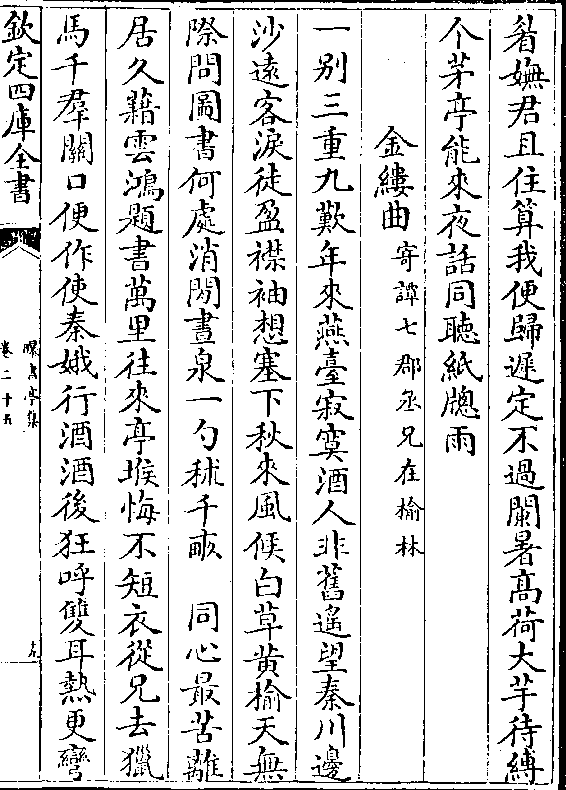 着嫵君且住算我便歸遲定不過闌暑高荷大芋待縛
个茅亭能來夜話同聽紙牕雨
金縷曲 寄譚七郡丞兄在榆林
一别三重九歎年來燕臺寂寞酒人非舊遙望秦川邊
沙遠客淚徒盈襟袖想塞下秋來風候白草黄榆天無
際問圖書何處消閒晝泉一勺秫千畝 同心最苦離
居久藉雲鴻題書萬里往來亭堠悔不短衣從兄去獵
馬千羣關口便作使秦娥行酒酒後狂呼雙耳熱更彎
欽定四庫全書
曝書亭集
卷二十五
九